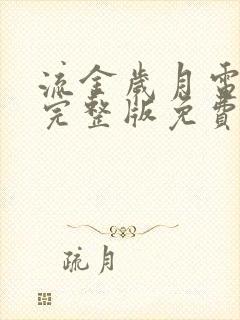 流金歲月電
完整版免費
疏月